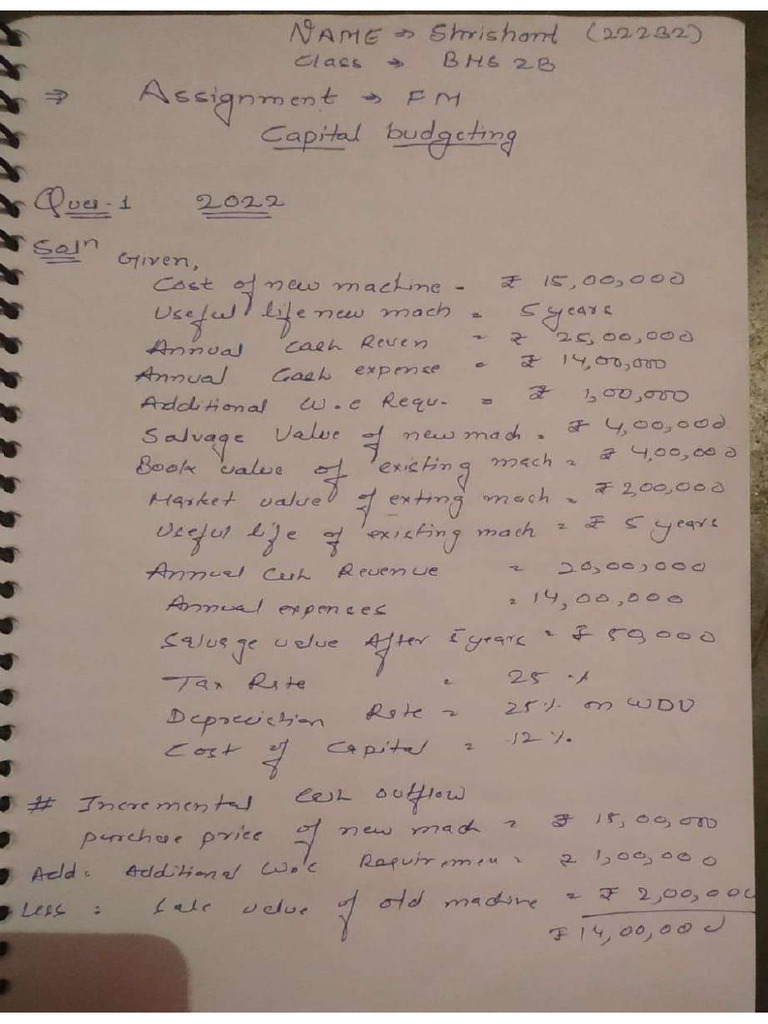 NAME ⇒ Shrishant (22232)
Class → BMS 2B
⇒ Assignment → FM
Capital budgeting
Ques-1 2022
Soln Given,
Cost of new machine = ₹ 15,00,000
Useful life new mach = 5 years
Annual Cash Reven = ₹ 25,00,000
Annual Cash expense = ₹ 14,00,000
Additional W.C Requ. = ₹ 1,00,000
Salvage Value of new mach = ₹ 4,00,000
Book value of existing mech = ₹ 4,00,000
Market value of exting mach = ₹ 2,00,000
Useful life of existing mach = ₹ 5 years
Annual Cash Revenue = 20,00,000
Annual expences = 14,00,000
Salvage value After 5 years = ₹ 50,000
Tax Rate = 25 %
Depreciation Rate = 25% on WDV
Cost of Capital = 12 %
# Incremental Cash outflow
purchase price of new mach = ₹ 15,00,000
Add: Additional W.C Requiremen = ₹ 1,00,000
Less : Sale value of old machine = ₹ 2,00,000
₹ 14,00,000